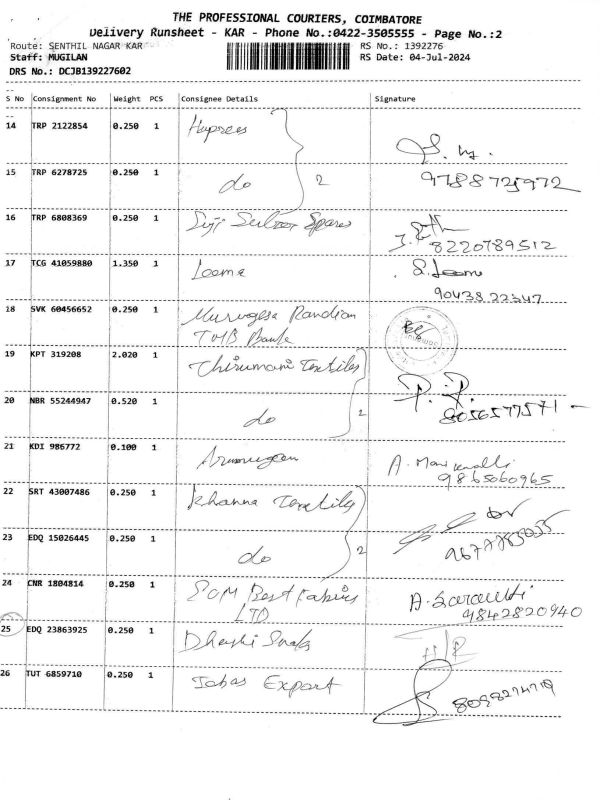 THE PROFESSIONAL COURIERS, COIMBATORE
Delivery Runsheet - KAR - Phone No.:0422-3505555 - Page No.:2
Route: SENTHIL NAGAR KAR
RS No.: 1392276
Staff: MUGILAN
RS Date: 04-Jul-2024
DRS No.: DCJB139227602
S No Consignment No Weight PCS Consignee Details Signature
14 TRP 2122854 0.250 1
15 TRP 6278725 0.250 1 do 2
9788725972
16 TRP 6808369 0.250 1 Spares
8220789512
17 TCG 41059880 1.350 1 Leema S. Leema
90438 22347
18 SVK 60456652 0.250 1 Murugesa Pandian
TMB Bank
19 KPT 319208 2.020 1 Thirumani Textiles
20 NBR 55244947 0.520 1 do 2
8056577571
21 KDI 986772 0.100 1 Arumugam A.
9865060965
22 SRT 43007486 0.250 1 Khanna Textiles
23 EDQ 15026445 0.250 1 do 2
24 CNR 1804814 0.250 1 SCM
LTD
9842820940
25 EDQ 23863925 0.250 1
26 TUT 6859710 0.250 1 Jabas Export